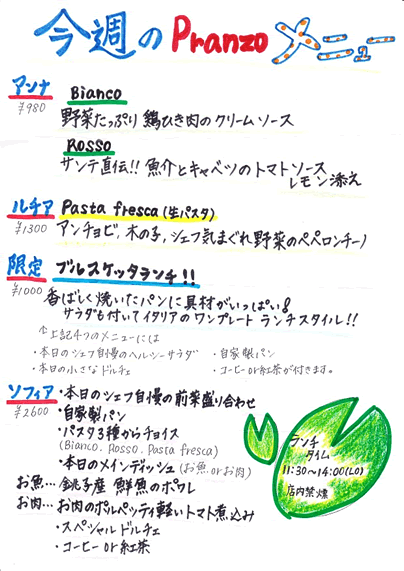 今週のPranzoメニュー
アンナ Bianco
¥980 野菜たっぷり 鶏ひき肉のクリームソース
Rosso
サンテ直伝!! 魚介とキャベツのトマトソース
レモン添え
ルチア Pasta fresca(生パスタ)
¥1300 アンチョビ、木の子、シェフ気まぐれ野菜のペペロンチーノ
限定 ブルスケッタランチ!!
¥1000 香ばしく焼いたパンに具材がいっぱい!
サラダも付いてイタリアのワンプレートランチスタイル!!
↑上記4つのメニューには
・本日のシェフ自慢のヘルシーサラダ ・自家製パン
・本日の小さなドルチェ ・コーヒーor紅茶が付きます。
ソフィア ・本日のシェフ自慢の前菜盛り合わせ
¥2600 ・自家製パン
・パスタ3種からチョイス
(Bianco. Rosso. Pasta fresca)
・本日のメインディッシュ(お魚orお肉)
お魚… 銚子産 鮮魚のポワレ
お肉… お肉のポルペッティ軽いトマト煮込み
・スペシャルドルチェ
・コーヒーor紅茶
ランチ
タイム
11:30~14:00(LO)
店内禁煙